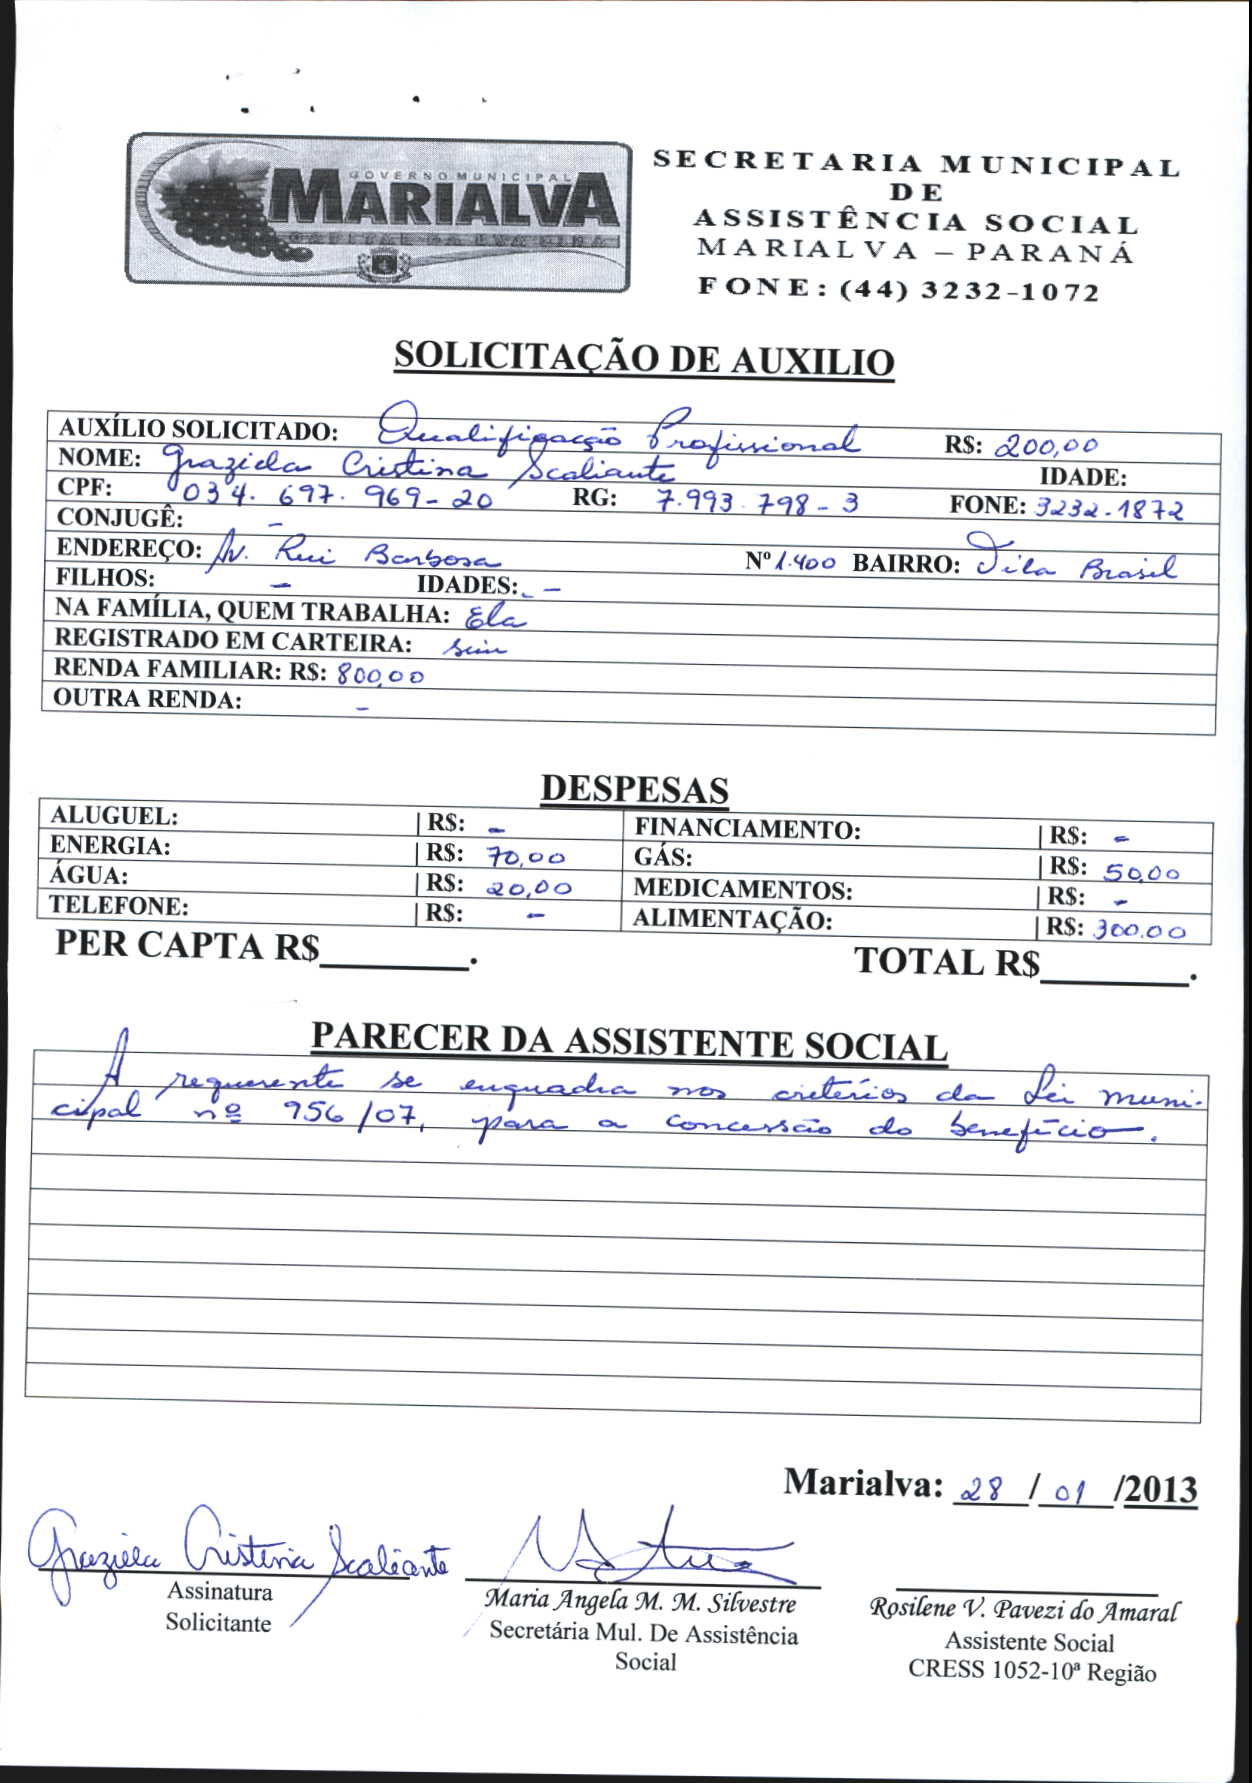 GOVERNO MUNICIPAL
MARIALVA
SECRETARIA MUNICIPAL
DE
ASSISTÊNCIA SOCIAL
MARIALVA – PARANÁ
FONE: (44) 3232-1072
SOLICITAÇÃO DE AUXILIO
AUXÍLIO SOLICITADO: Qualificação Profissional R$: 200,00
NOME: Graziela Cristina Scaliante IDADE:
CPF: 034. 697. 969-20 RG: 7.993.798-3 FONE: 3232-1872
CONJUGÊ: -
ENDEREÇO: Av. Rui Barbosa Nº 1.400 BAIRRO: Vila Brasil
FILHOS: - IDADES: -
NA FAMÍLIA, QUEM TRABALHA: Ela
REGISTRADO EM CARTEIRA: sim
RENDA FAMILIAR: R$: 800,00
OUTRA RENDA: -
DESPESAS
ALUGUEL: | R$: - FINANCIAMENTO: | R$: -
ENERGIA: | R$: 70,00 GÁS: | R$: 50,00
ÁGUA: | R$: 20,00 MEDICAMENTOS: | R$: -
TELEFONE: | R$: - ALIMENTAÇÃO: | R$: 300,00
PER CAPTA R$________. TOTAL R$________.
PARECER DA ASSISTENTE SOCIAL
A requerente se enquadra nos critérios da Lei muni-
cipal nº 956/07, para a concessão do benefício.
Marialva: 28 / 01 /2013
Graziela Cristina Scaliante
Assinatura
Solicitante
Maria Angela M. M. Silvestre
Secretária Mul. De Assistência
Social
Rosilene V. Pavezi do Amaral
Assistente Social
CRESS 1052-10ª Região